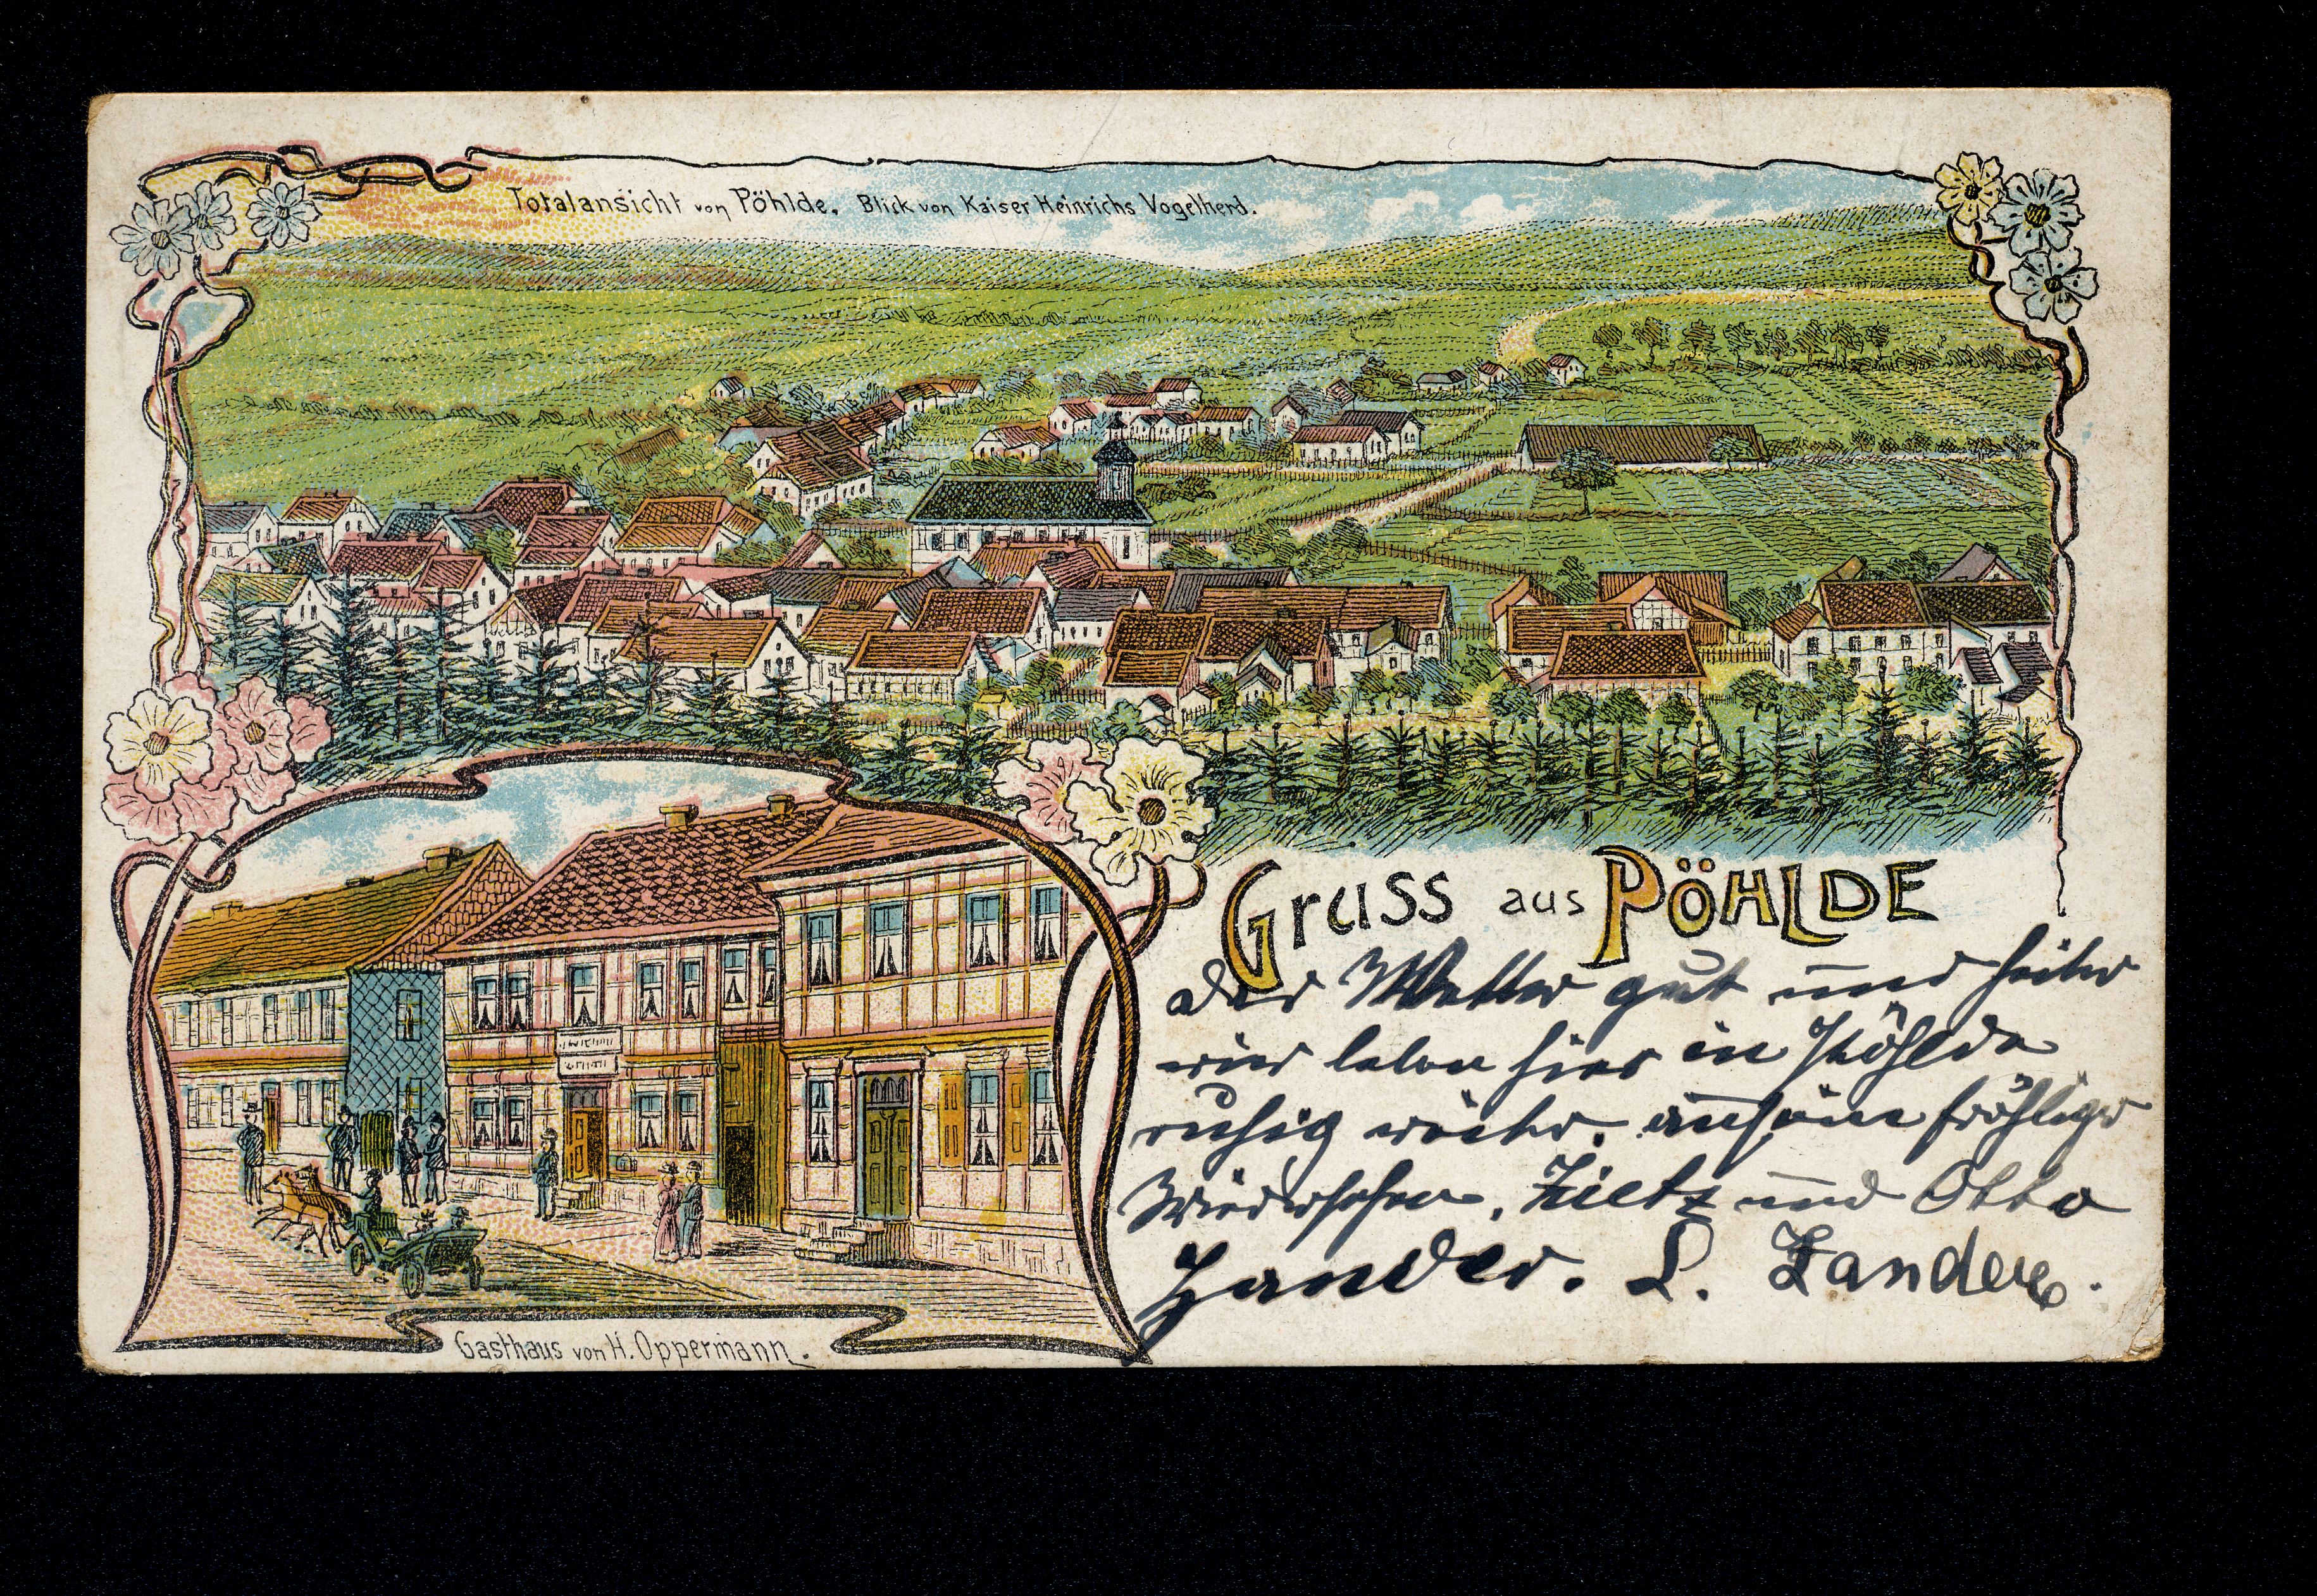 Totalansicht von Pöhlde. Blick von Kaiser Heinrichs Vogelherd.
Gruss aus PÖHLDE
Der Wetter gut und heiter
wir leben hier in Pöhlde
ruhig weiter. auf ein fröhliges
Wiedersehen. Zietz und Otto
Zander. L. Zander.
Gasthaus von H. Oppermann.